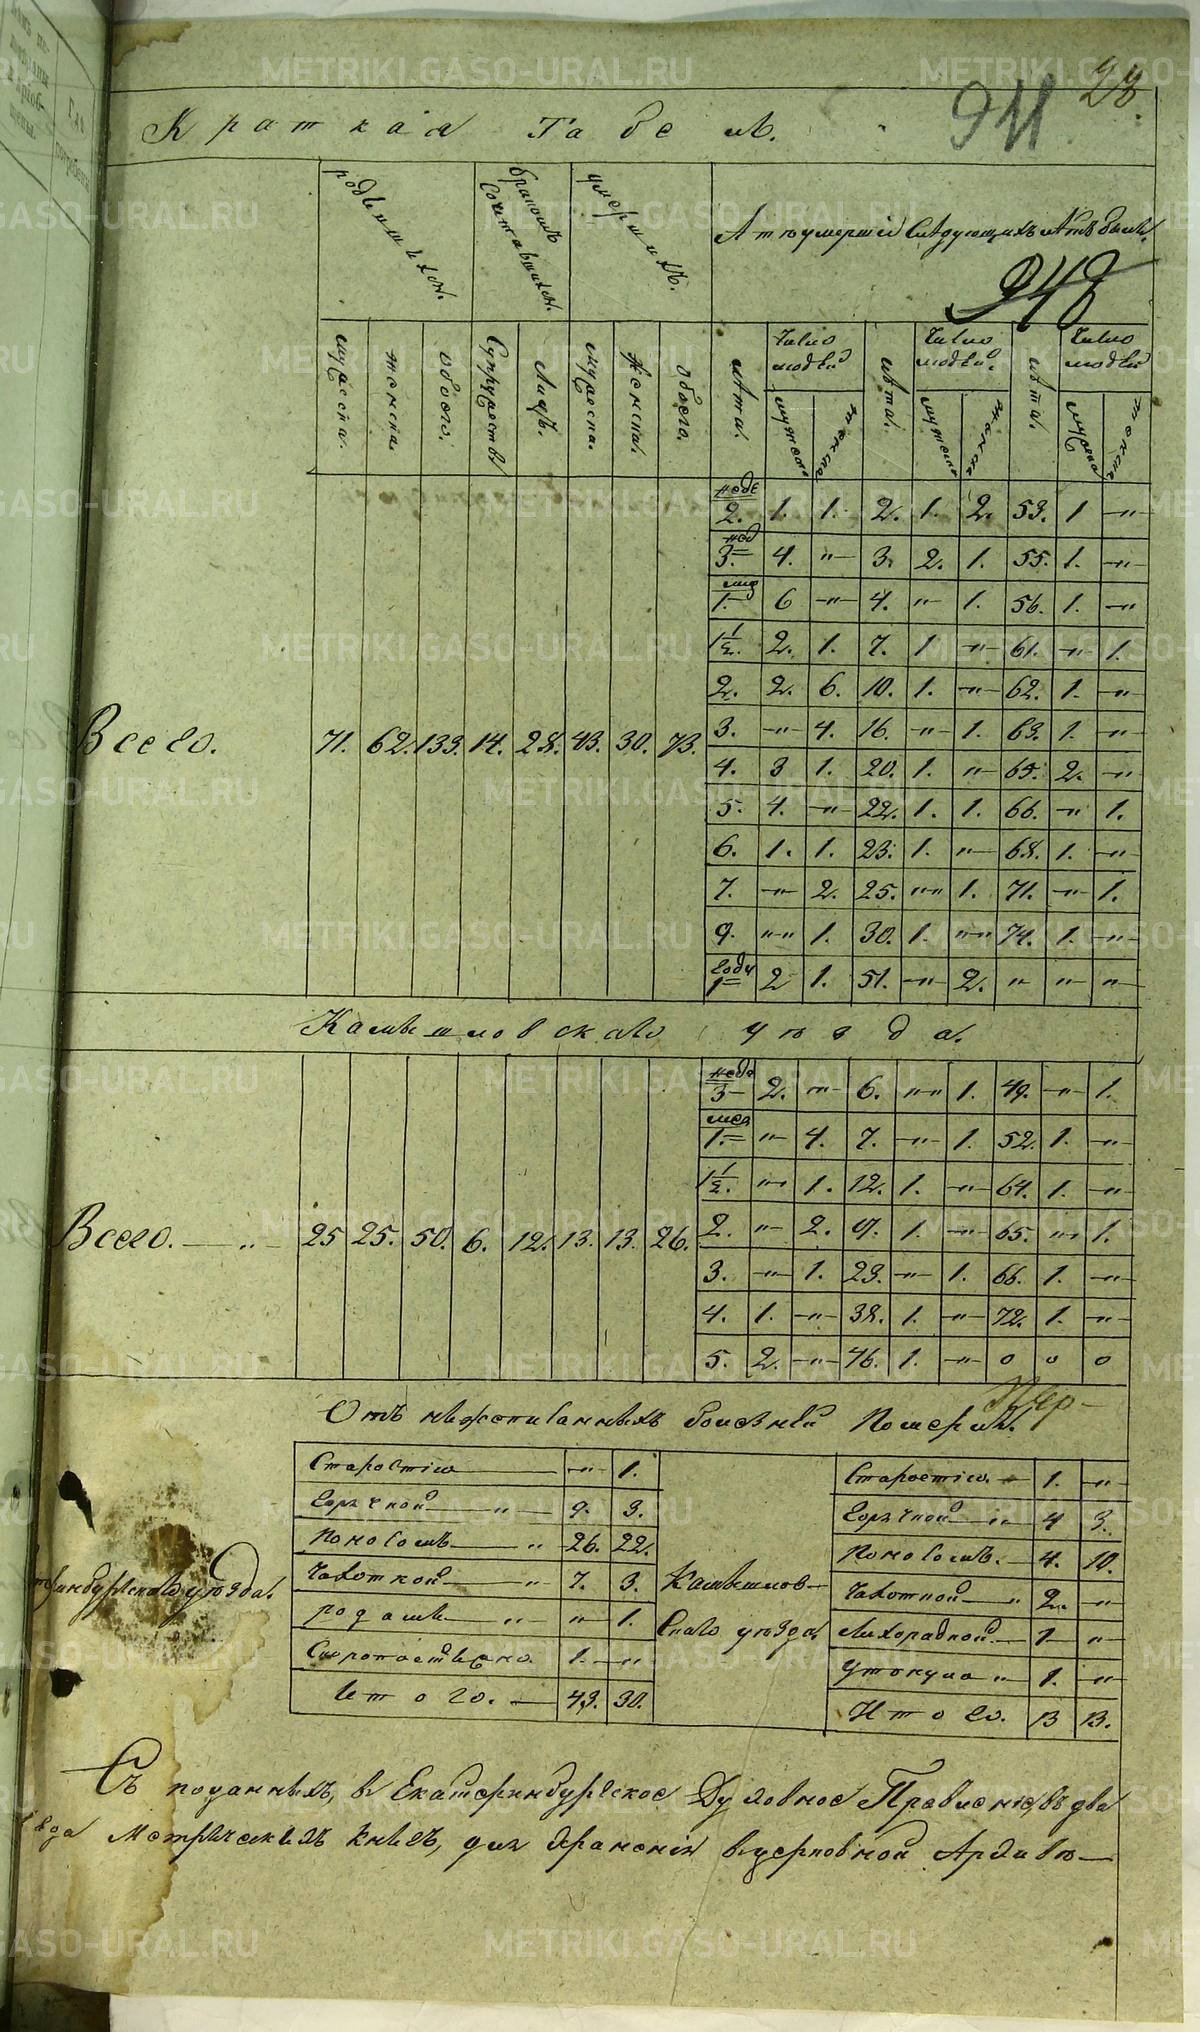 28.
911
Краткая Табель.
родившихся.
бракомъ сочетавшихся.
умершихъ.
948
мужеска.
женска.
обоего.
Супружествъ
Лицъ.
мужеска.
Женска.
обоего.
лѣта.
Число людей
лѣта.
Число людей.
лѣта.
Число людей
неде 2. 1. 1. 2. 1. 2. 53. 1 —"—
нед 3. 4. " 3. 2. 1. 55. 1. —"—
1. 6 —"— 4. " 1. 56. 1. —"
1½. 2. 1. 7. 1 —"— 61. —"— 1.
2. 2. 6. 10. 1. —"— 62. 1. —"—
Всего. 71. 62. 133. 14. 28. 43. 30. 73.
3. —"— 4. 16. —"— 1. 63. 1. —"—
4. 3 1. 20. 1. " 65. 2. —"—
5. 4. —"— 22. 1. 1. 66. —" 1.
6. 1. 1. 23. 1. "— 68. 1. —"—
7. —"— 2. 25. "" 1. 71. —"— 1.
9. "" 1. 30. 1. "" 74. 1. —"—
годъ 1 2 1. 51. —"— 2. " " "
Камышловскаго уѣзда.
неде 3 2. "— 6. "" 1. 49. —"— 1.
мес 1. "— 4. 7. —"— 1. 52. 1. —"—
1½. "— 1. 12. 1. —"— 64. 1. —"—
Всего. —"— 25 25. 50. 6. 12. 13. 13. 26.
2. " 2. 1. —"— 65. "— 1.
3. —"— 1. 23. —"— 1. 66. 1. —"—
4. 1. —"— 38. 1. —"— 72. 1. —"—
5. 2. —"— 46. 1. —"— 0 0 0
Отъ нижеписанныхъ болезней Померли.
Старостію —"— 1.
Горячкой " 9. 3.
Поносомъ " 26. 22.
Чахоткой " 7. 3.
родами " " 1.
Скоропостижно. 1. —"
Итого. 43. 30.
Камышловскаго уѣзда.
Старостію. 1. "
Горячкой " 4 3.
Поносомъ. 4. 10.
Чахоткой " 2. "
Лихорадкой 1 "
Утонуло " 1. "
Итого. 13 13.
Съ поданныхъ, в Екатеринбургское Духовное Правленіе, въ два
Метрическихъ книгъ, для храненія в церковной Архивѣ—
METRIKI.GASO-URAL.RU